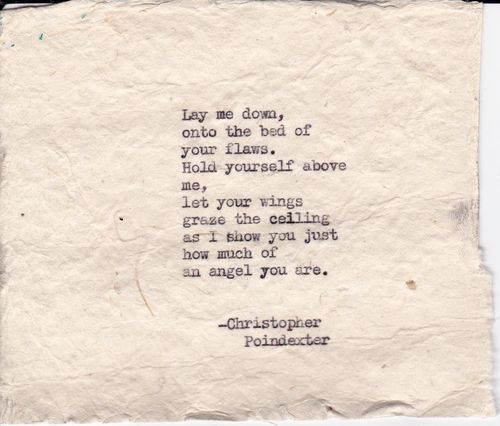 Lay me down,
onto the bed of
your flaws.
Hold yourself above
me,
let your wings
graze the ceiling
as I show you just
how much of
an angel you are.
-Christopher
Poindexter